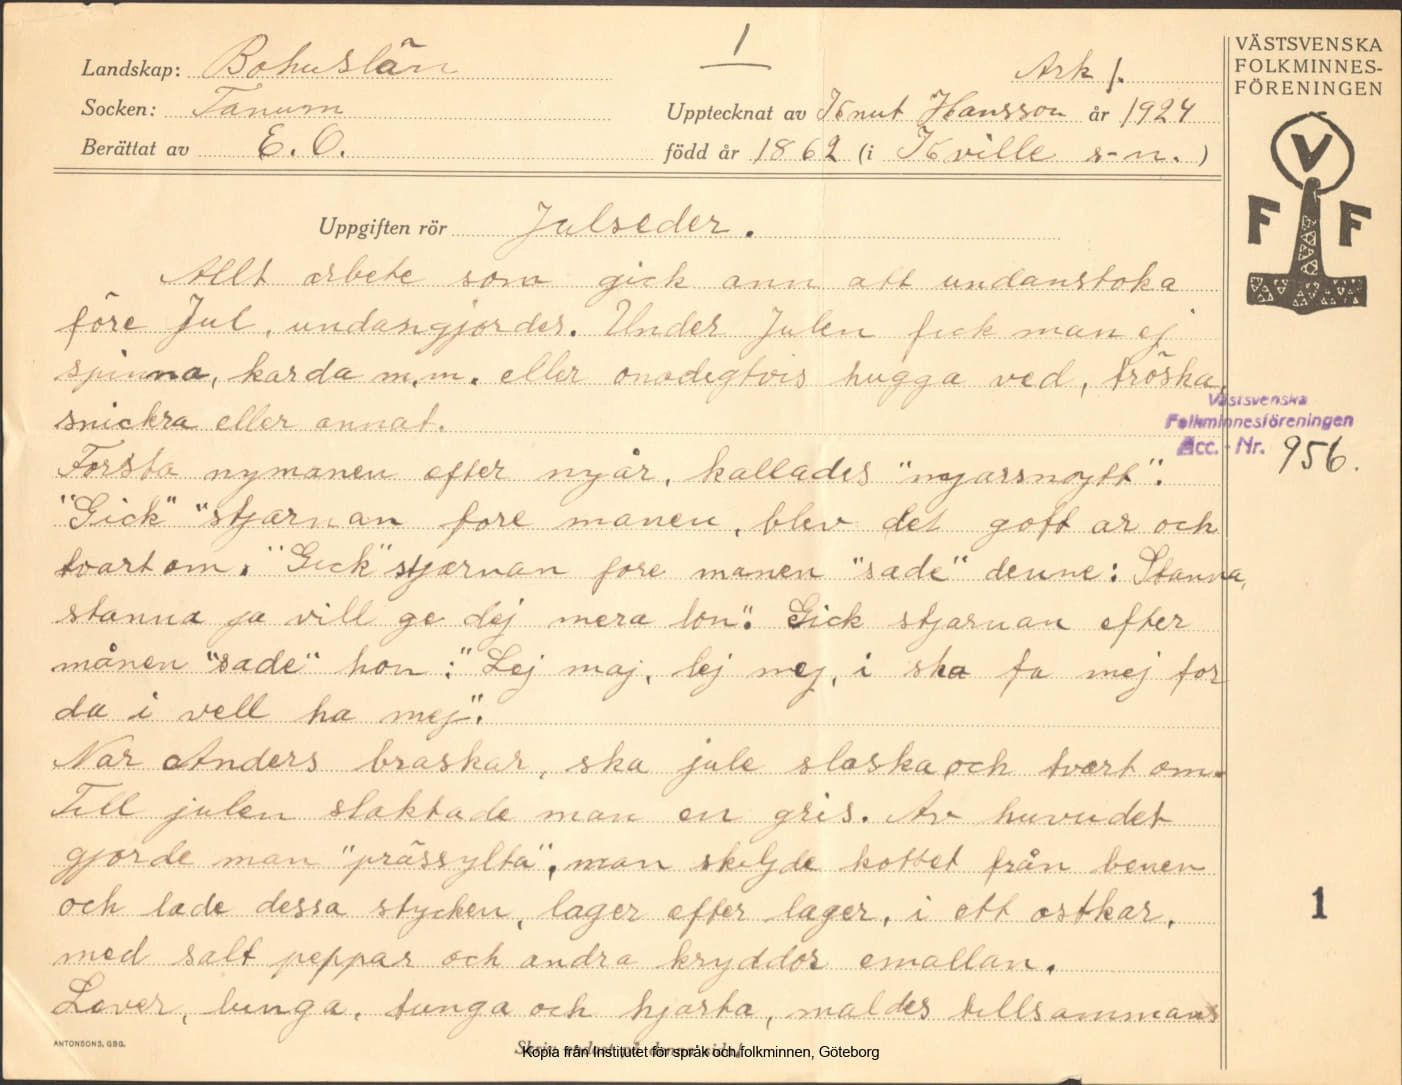 Landskap: Bohuslän
1
Ark 1.
Socken: Tanum
Upptecknat av Knut Hansson år 1924
Berättat av E. O.
född år 1862 (i Kville s-n. )
VÄSTSVENSKA
FOLKMINNES-
FÖRENINGEN
V
F F
Uppgiften rör Julseder.
Allt arbete som gick ann att undanstoka
före Jul, undangjordes. Under Julen fick man ej
spinna, karda m.m. eller onödigtvis hugga ved, tröska,
snickra eller annat.
Västsvenska
Folkminnesföreningen
Acc. - Nr. 956.
Forsta nymanen efter nyår, kallades "nyarsnoytt".
"Gick" "stjarnan fore manen, blev det gott ar och
tvart om. "Gick" stjarnan fore manen "sade" denne: Stanna,
stanna ja vill ge dej mera lon". Gick stjarnan efter
månen "sade" hon :" Lej maj, lej mej, i ska fa mej for
da i vell ha mej".
Nar Anders braskar, ska jule slaska, och tvart om.
Till julen slaktade man en gris. Av huvudet
gjorde man "prässylta", man skiljde kottet från benen
och lade dessa stycken, lager efter lager, i ett ostkar,
med salt peppar och andra kryddor emallan.
Lever, lunga, tunga och hjarta, maldes tillsammans
1
ANTONSONS, GBG.
Skriv endast på denna sida!
Kopia från Institutet för språk och folkminnen, Göteborg